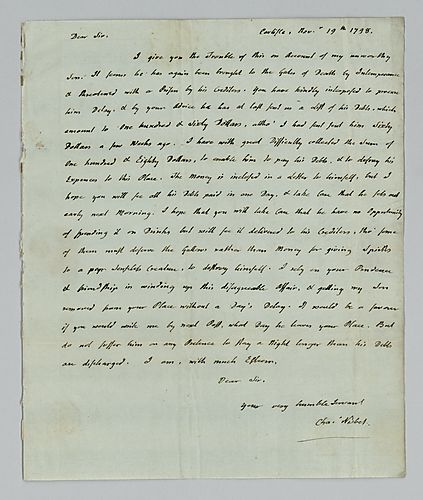 Carlisle, Novr. 19th 1798.
Dear Sir.
I give you the Trouble of this on Account of my unworthy
Son. It seems he has again been brought to the Gates of Death by Intemperance
& threatened with a Prison by his Creditors. You have kindly interposed to procure
him Delay, & by your Advice he has at last sent us a List of his Debts, which
amount to One hundred & Sixty Dollars, altho' I had just sent him Sixty
Dollars a few Weeks ago. I have with great Difficulty collected the Sum of
One hundred & Eighty Dollars, to enable him to pay his Debts, & to defray his
Expences to this Place. The Money is inclosed in a Letter to himself, but I
hope you will see all his Debts paid in one Day, & take Care that he sets out
early next Morning. I hope that you will take Care that he have no Opportunity
of spending it on Drink, but will see it delivered to his Creditors, tho' some
of them must deserve the Gallows rather than Money for giving Spirits
to a poor senseless Creature, to destroy himself. I rely on your Prudence
& friendship in winding up this disagreeable Affair, & getting my Son
removed from your Place without a Day's Delay. It would be a favour
if you would write me by next Post, what Day he leaves your Place. But
do not suffer him on any Pretence to stay a Night longer than his Debts
are discharged. I am, with much Esteem,
Dear Sir.
Your very humble Servant
Chas. Nisbet.